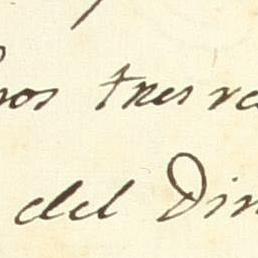 nos tres re
del Din